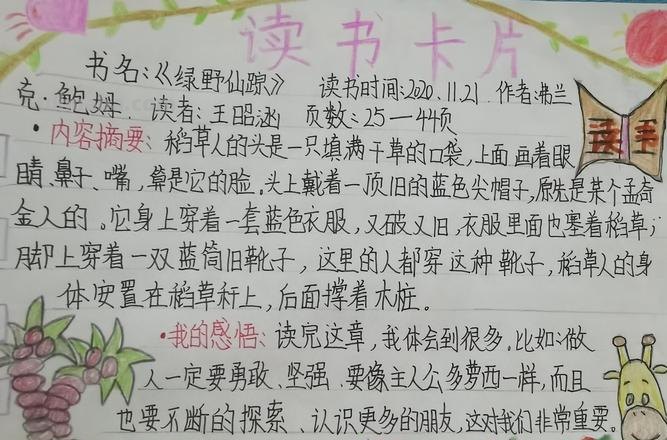 读书卡片
书名:《绿野仙踪》 读书时间:2020.11.21 作者:沸兰
克.鲍姆. 读者:王昭涵 页数:25—44页
·内容摘要:稻草人的头是一只填满干草的口袋,上面画着眼
睛、鼻子、嘴,算是它的脸.头上戴着一顶旧的蓝色尖帽子,原先是某个孟奇
金人的。它身上穿着一套蓝色衣服,又破又旧,衣服里面也塞着稻草;
脚上穿着一双蓝筒旧靴子,这里的人都穿这种靴子,稻草人的身
体安置在稻草秆上,后面撑着木桩。
·我的感悟:读完这章,我体会到很多.比如:做
人一定要勇敢、坚强.要像主人公多萝西一样,而且
也要不断的探索、认识更多的朋友,这对我们非常重要。